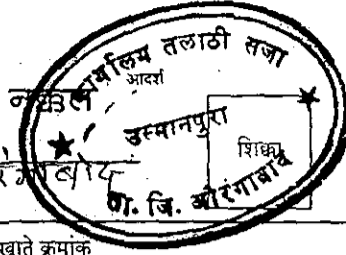 कार्यालय तलाठी सजा
आदर्श
नक्कल
उस्मानपुरा
शिक्का
ता. जि. औरंगाबाद
खाते क्रमांक